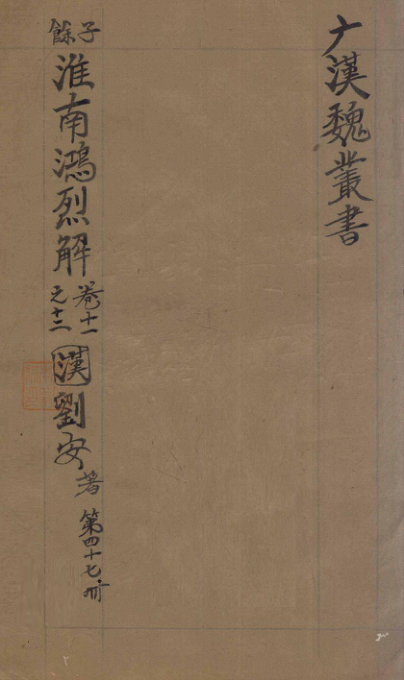 广漢魏叢書
子餘
淮南鴻烈解
卷十一
之十二
漢劉安著
第四十七冊